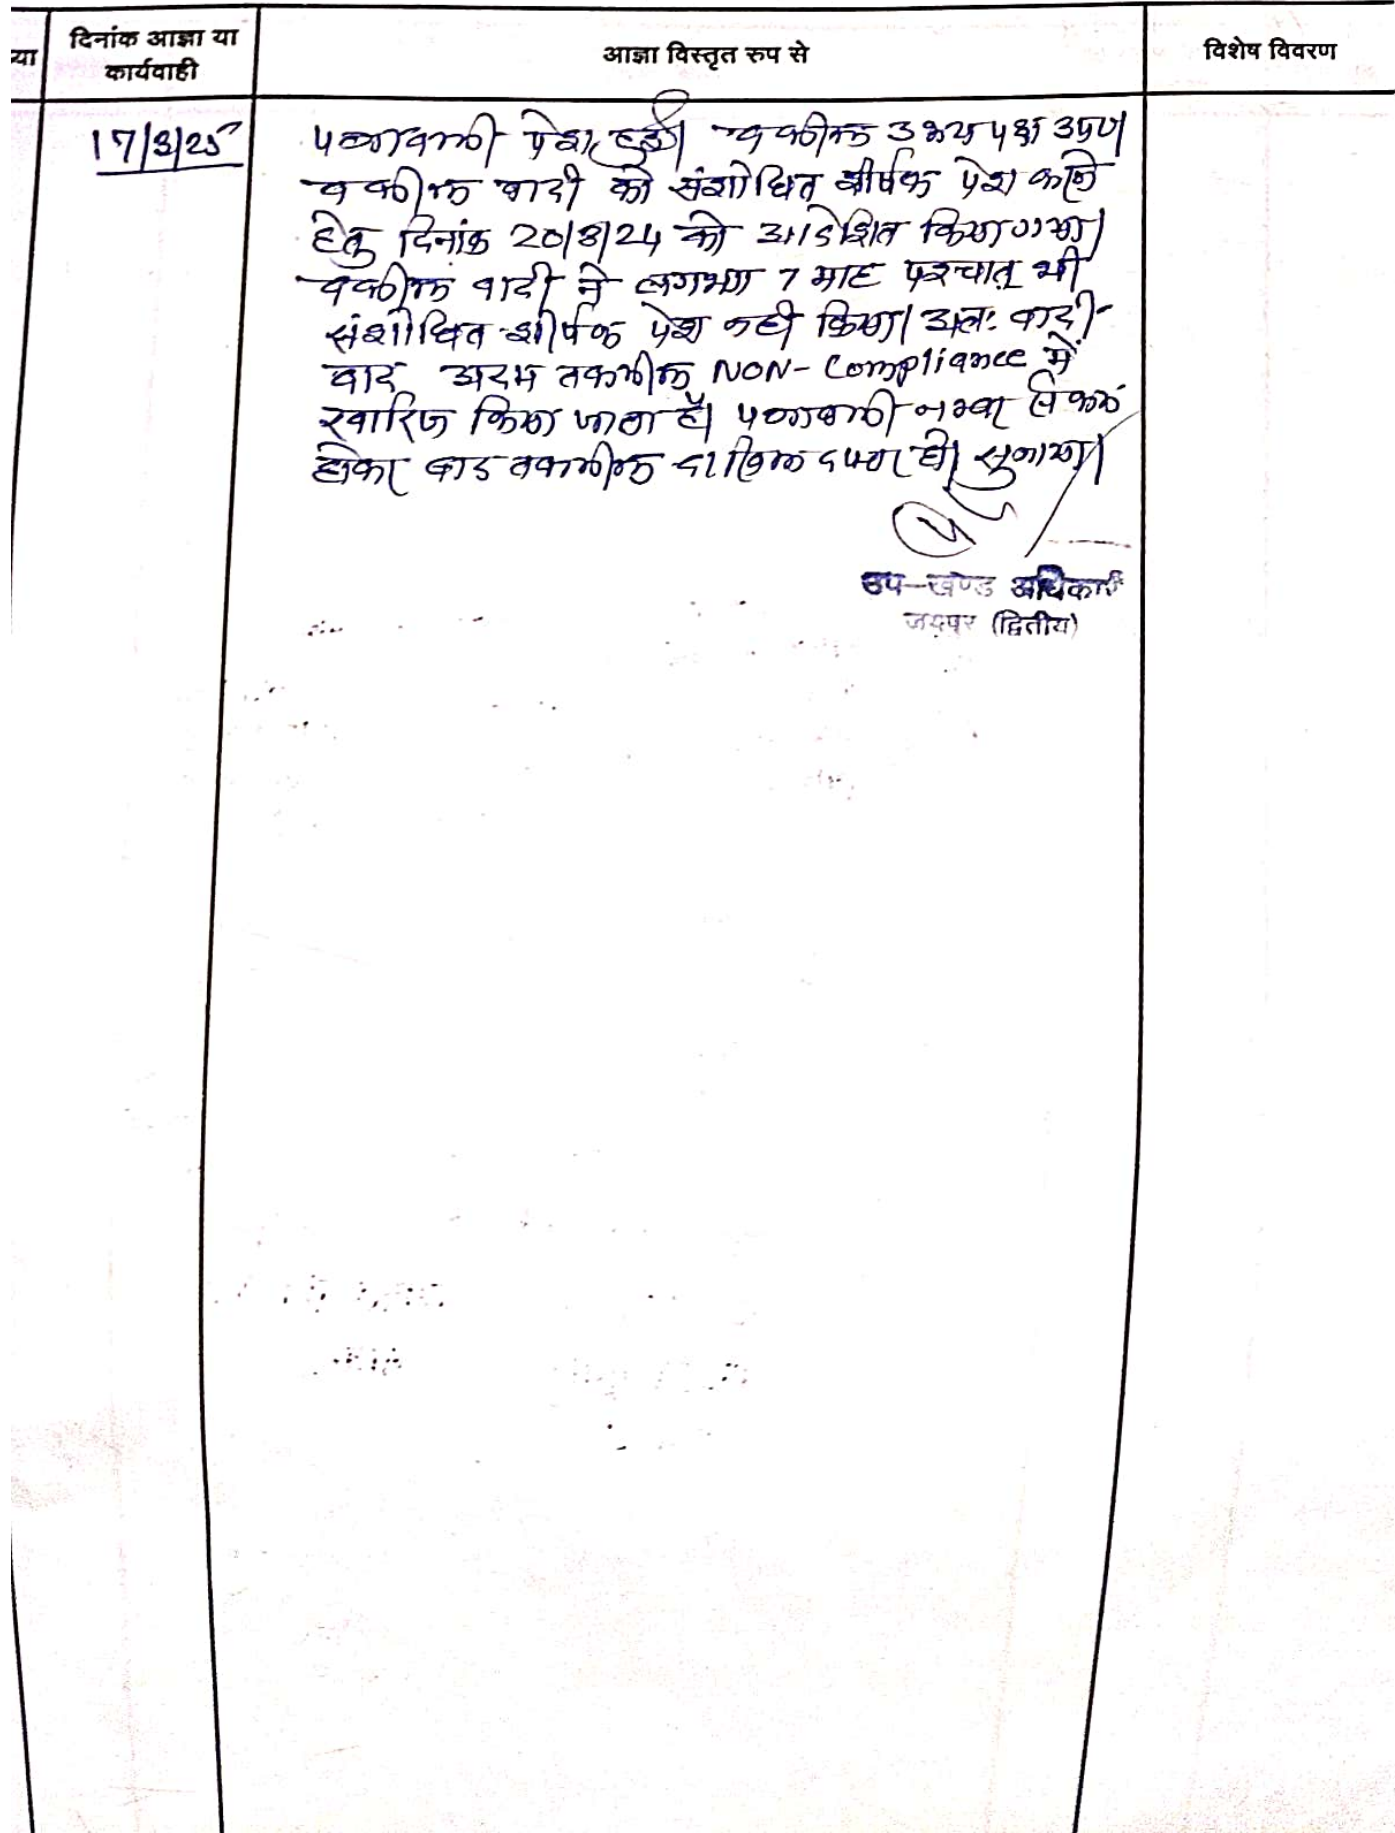 या
दिनांक आज्ञा या
कार्यवाही
आज्ञा विस्तृत रुप से
विशेष विवरण
17/3/25
पत्रावली पेश हुई। वकील उभय पक्ष उप0।
वकील वादी को संशोधित शीर्षक पेश करने
हेतु दिनांक 20/8/24 को आदेशित किया गया।
वकील वादी ने लगभग 7 माह पश्चात् भी
संशोधित शीर्षक पेश नही किया। अतः वादी
वाद अदम तकमील NON-Compliance में
खारिज किया जाता है। पत्रावली नम्बर से कम
होकर बाद तकमील दाखिल दफ्तर हो। सुनाया।
उप-खण्ड अधिकारी
जयपुर (द्वितीय)